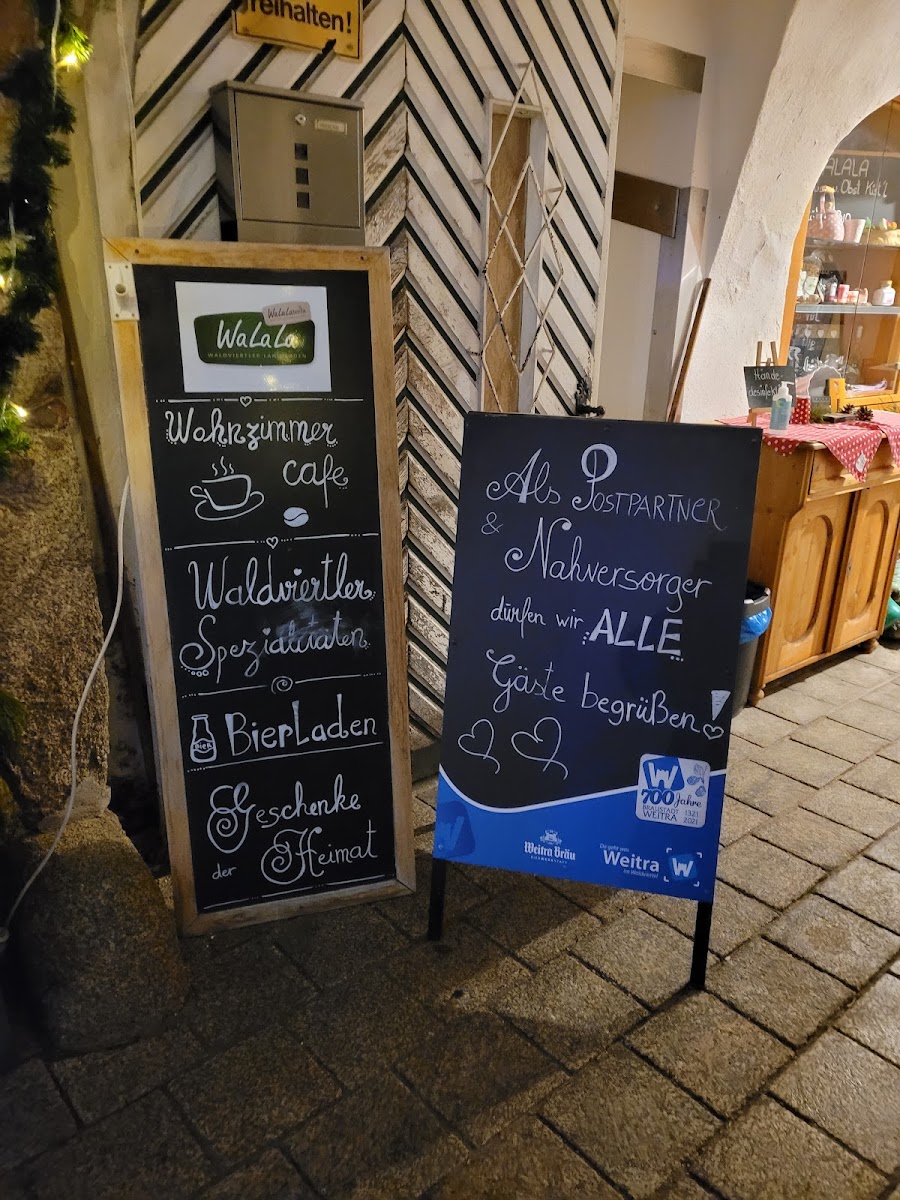 freihalten!
WaLaLavita
WaLaLa
WALDVIERTLER LANDLADEN
Wohnzimmer
Cafe
Waldviertler
Spezialitäten
BIER
BierLaden
Geschenke
der Heimat
Als Postpartner
&
Nahversorger
dürfen wir ALLE
Gäste begrüßen
W
700 Jahre
BRAUSTADT
WEITRA
1321
2021
Weitra Bräu
Da geht was
Weitra
im Waldviertel
W
ALALA
Obst
Hände-
desinfekt